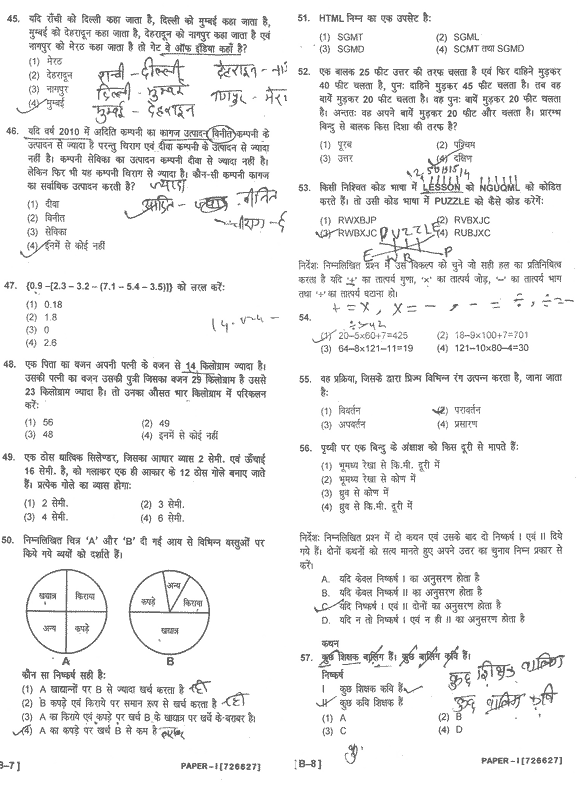 45. यदि राँची को दिल्ली कहा जाता है, दिल्ली को मुम्बई कहा जाता है,
मुम्बई को देहरादून कहा जाता है, देहरादून को नागपुर कहा जाता है एवं
नागपुर को मेरठ कहा जाता है तो गेट वे ऑफ इंडिया कहाँ है?
(1) मेरठ
(2) देहरादून
(3) नागपुर
(4) मुम्बई
46. यदि वर्ष 2010 में अदिति कम्पनी का कागज उत्पादन विनीत कम्पनी के
उत्पादन से ज्यादा है परन्तु चिराग एवं दीवा कम्पनी के उत्पादन से ज्यादा
नहीं है। कम्पनी सेविका का उत्पादन कम्पनी दीवा से ज्यादा नहीं है।
लेकिन फिर भी यह कम्पनी चिराग से ज्यादा है। कौन-सी कम्पनी कागज
का सर्वाधिक उत्पादन करती है?
(1) दीवा
(2) विनीत
(3) सेविका
(4) इनमें से कोई नहीं
47. {0.9 –[2.3 – 3.2 – (7.1 – 5.4 – 3.5)]} को सरल करें:
(1) 0.18
(2) 1.8
(3) 0
(4) 2.6
48. एक पिता का वजन अपनी पत्नी के वजन से 14 किलोग्राम ज्यादा है।
उसकी पत्नी का वजन उसकी पुत्री जिसका वजन 29 किलोग्राम है उससे
23 किलोग्राम ज्यादा है। तो उनका औसत भार किलोग्राम में परिकलन
करें:
(1) 56 (2) 49
(3) 48 (4) इनमें से कोई नहीं
49. एक ठोस धात्विक सिलेण्डर, जिसका आधार व्यास 2 सेमी. एवं ऊँचाई
16 सेमी. है, को गलाकर एक ही आकार के 12 ठोस गोले बनाए जाते
हैं। प्रत्येक गोले का व्यास होगा:
(1) 2 सेमी. (2) 3 सेमी.
(3) 4 सेमी. (4) 6 सेमी.
50. निम्नलिखित चित्र ‘A’ और ‘B’ दी गई आय से विभिन्न वस्तुओं पर
किये गये व्ययों को दर्शाते हैं।
खद्यान्न किराया
अन्य कपड़े
A
अन्य
कपड़े किराया
खद्यान्न
B
कौन सा निष्कर्ष सही है:
(1) A खाद्यान्नों पर B से ज्यादा खर्च करता है
(2) B कपड़े एवं किराये पर समान रूप से खर्च करता है
(3) A का किराये एवं कपड़े पर खर्च B के खद्यान्न पर खर्चे के बराबर है।
(4) A का कपड़े पर खर्च B से कम है
B-7] PAPER–I [726627]
51. HTML निम्न का एक उपसेट है:
(1) SGMT (2) SGML
(3) SGMD (4) SCMT तथा SGMD
52. एक बालक 25 फीट उत्तर की तरफ चलता है एवं फिर दाहिने मुड़कर
40 फीट चलता है, पुन: दाहिने मुड़कर 45 फीट चलता है। तब वह
बायें मुड़कर 20 फीट चलता है। वह पुन: बायें मुड़कर 20 फीट चलता
है। अन्तत: वह अपने बायें मुड़कर 20 फीट और चलता है। प्रारम्भ
बिन्दु से बालक किस दिशा की तरफ है?
(1) पूरब (2) पश्चिम
(3) उत्तर (4) दक्षिण
53. किसी निश्चित कोड भाषा में LESSON को NGUQML को कोडित
करते हैं। तो उसी कोड भाषा में PUZZLE को कैसे कोड करेंगें:
(1) RWXBJP (2) RVBXJC
(3) RWBXJC (4) RUBJXC
PUZZLE
निर्देश: निम्नलिखित प्रश्न में उस विकल्प को चुने जो सही हल का प्रतिनिधित्व
करता है यदि ‘+’ का तात्पर्य गुणा, ‘x’ का तात्पर्य जोड़, ‘–’ का तात्पर्य भाग
तथा ‘÷’ का तात्पर्य घटाना हो।
54.
(1) 20–5x60÷7=425 (2) 18–9x100+7=701
(3) 64–8x121–11=19 (4) 121–10x80–4=30
55. वह प्रक्रिया, जिसके द्वारा प्रिज्म विभिन्न रंग उत्पन्न करता है, जाना जाता
है:
(1) विवर्तन (2) परावर्तन
(3) अपवर्तन (4) प्रसारण
56. पृथ्वी पर एक बिन्दु के अंशाश को किस दूरी से मापते हैं:
(1) भूमध्य रेखा से कि.मी. दूरी में
(2) भूमध्य रेखा से कोण में
(3) ध्रुव से कोण में
(4) ध्रुव से कि.मी. दूरी में
निर्देश: निम्नलिखित प्रश्न में दो कथन एवं उसके बाद दो निष्कर्ष I एवं II दिये
गये हैं। दोनों कथनों को सत्य मानते हुए अपने उत्तर का चुनाव निम्न प्रकार से
करें।
A. यदि केवल निष्कर्ष I का अनुसरण होता है
B. यदि केवल निष्कर्ष II का अनुसरण होता है
C. यदि निष्कर्ष I एवं II दोनों का अनुसरण होता है
D. यदि न तो निष्कर्ष I एवं न ही II का अनुसरण होता है
कथन
57. कुछ शिक्षक बालिग हैं। कुछ बालिग कवि हैं।
निष्कर्ष
I कुछ शिक्षक कवि हैं
II कुछ कवि शिक्षक हैं
(1) A (2) B
(3) C (4) D
[B–8] PAPER–I [726627]